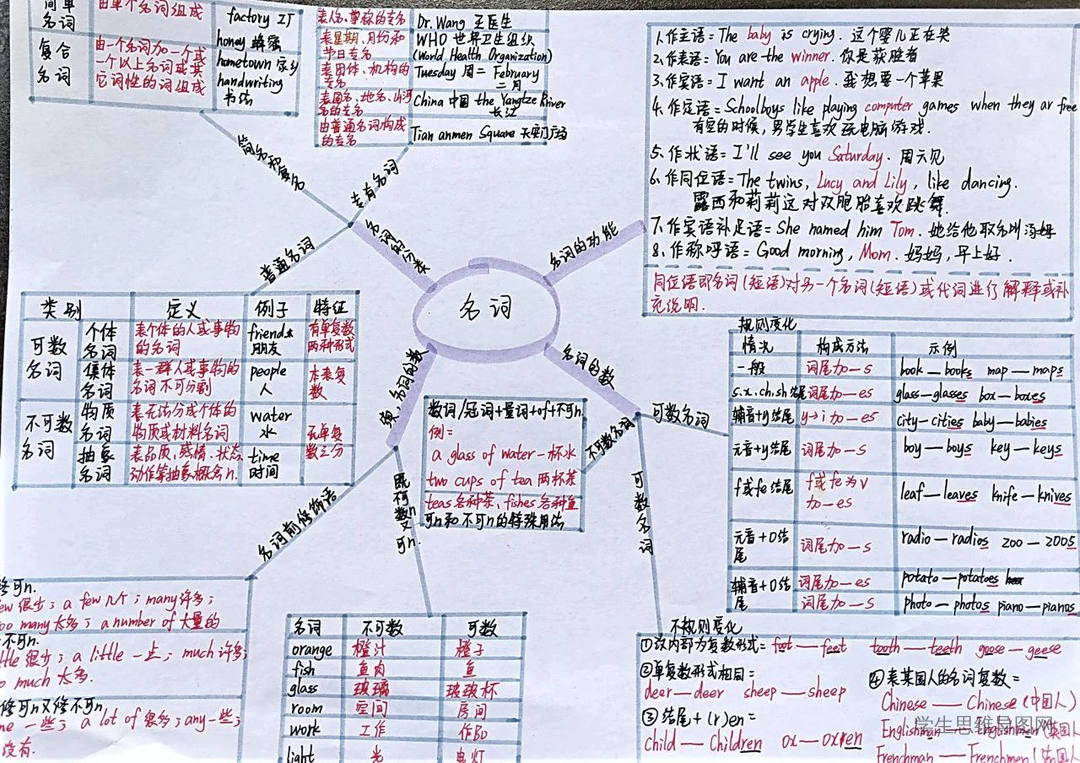 简单
名词
由单个名词组成
factory 工厂
复合
名词
由一个名词加一个或
一个以上名词或其
它词性的词组成
honey 蜂蜜
hometown 家乡
handwriting
书法
表人名、尊称的专名
Dr. Wang 王医生
表星期、月份和
节日专名
WHO 世界卫生组织
(World Health Organization)
表团体、机构的
专名
Tuesday 周二 February
二月
表国名、地名、山河
名的专名
China 中国 the Yangtze River
长江
由普通名词构成
的专名
Tian anmen Square 天安门广场
专有名词
普通名词
名词的分类
名词的功能
1.作主语=The baby is crying. 这个婴儿正在哭
2.作表语=You are the winner. 你是获胜者
3.作宾语=I want an apple. 我想要一个苹果
4.作定语=Schoolboys like playing computer games when they ar free
有空的时候,男学生喜欢玩电脑游戏.
5.作状语=I'll see you Saturday. 周六见
6.作同位语=The twins, Lucy and Lily, like dancing.
露西和莉莉这对双胞胎喜欢跳舞.
7.作宾语补足语=She named him Tom. 她给他取名叫汤姆
8.作称呼语=Good morning, Mom. 妈妈,早上好.
同位语即名词(短语)对另一个名词(短语)或代词进行解释或补
充说明.
名词
类别 定义 例子 特征
可数
名词
个体
名词
表个体的人或事物
的名词
friend
朋友
有单复数
两种形式
集体
名词
表一群人或事物的
名词不可分割
people
人
本表复
数
不可数
名词
物质
名词
表无法分成个体的
物质或材料名词
water
水
无单复
数之分
抽象
名词
表品质、感情、状态、
动作等抽象概念n.
time
时间
名词的数
数词/冠词+量词+of+不可n.
例=
a glass of water一杯水
two cups of tea 两杯茶
teas各种茶、fishes各种鱼
可n和不可n的特殊用法
名词的数
不可数名词
可数名词
可数名词
名词前修饰语
既可数n又不可n.
规则变化
情况 构成方法 示例
一般 词尾加—s book—books map—maps
s.x.ch.sh结尾 词尾加—es glass—glasses box—boxes
辅音+y结尾 y→i加—es city—cities baby—babies
元音+y结尾 词尾加—s boy—boys key—keys
f或fe结尾
f或fe为v
加—es
leaf—leaves knife—knives
元音+o结
尾
词尾加—s
radio—radios zoo—zoos
辅音+o结
尾
词尾加—es
potato—potatoes
词尾加—s
photo—photos piano—pianos
不规则变化
①改内部为复数形式=foot—feet tooth—teeth goose—geese
②单复数形式相同=
deer—deer sheep—sheep
③结尾+(r)en=
child—Children ox—oxen
④表某国人的名词复数=
Chinese—Chinese(中国人)
Englishman—Englishmen(英国人
Frenchman—Frenchmen(法国人
修可n.
few很少; a few几个; many许多;
too many太多; a number of大量的
不可n.
little很少; a little一点; much许多;
too much太多.
修可n又修不可n.
some一些; a lot of很多; any一些;
没有.
名词 不可数 可数
orange 橙汁 橙子
fish 鱼肉 鱼
glass 玻璃 玻璃杯
room 空间 房间
work 工作 作品
light 光 电灯
学生思维导图网